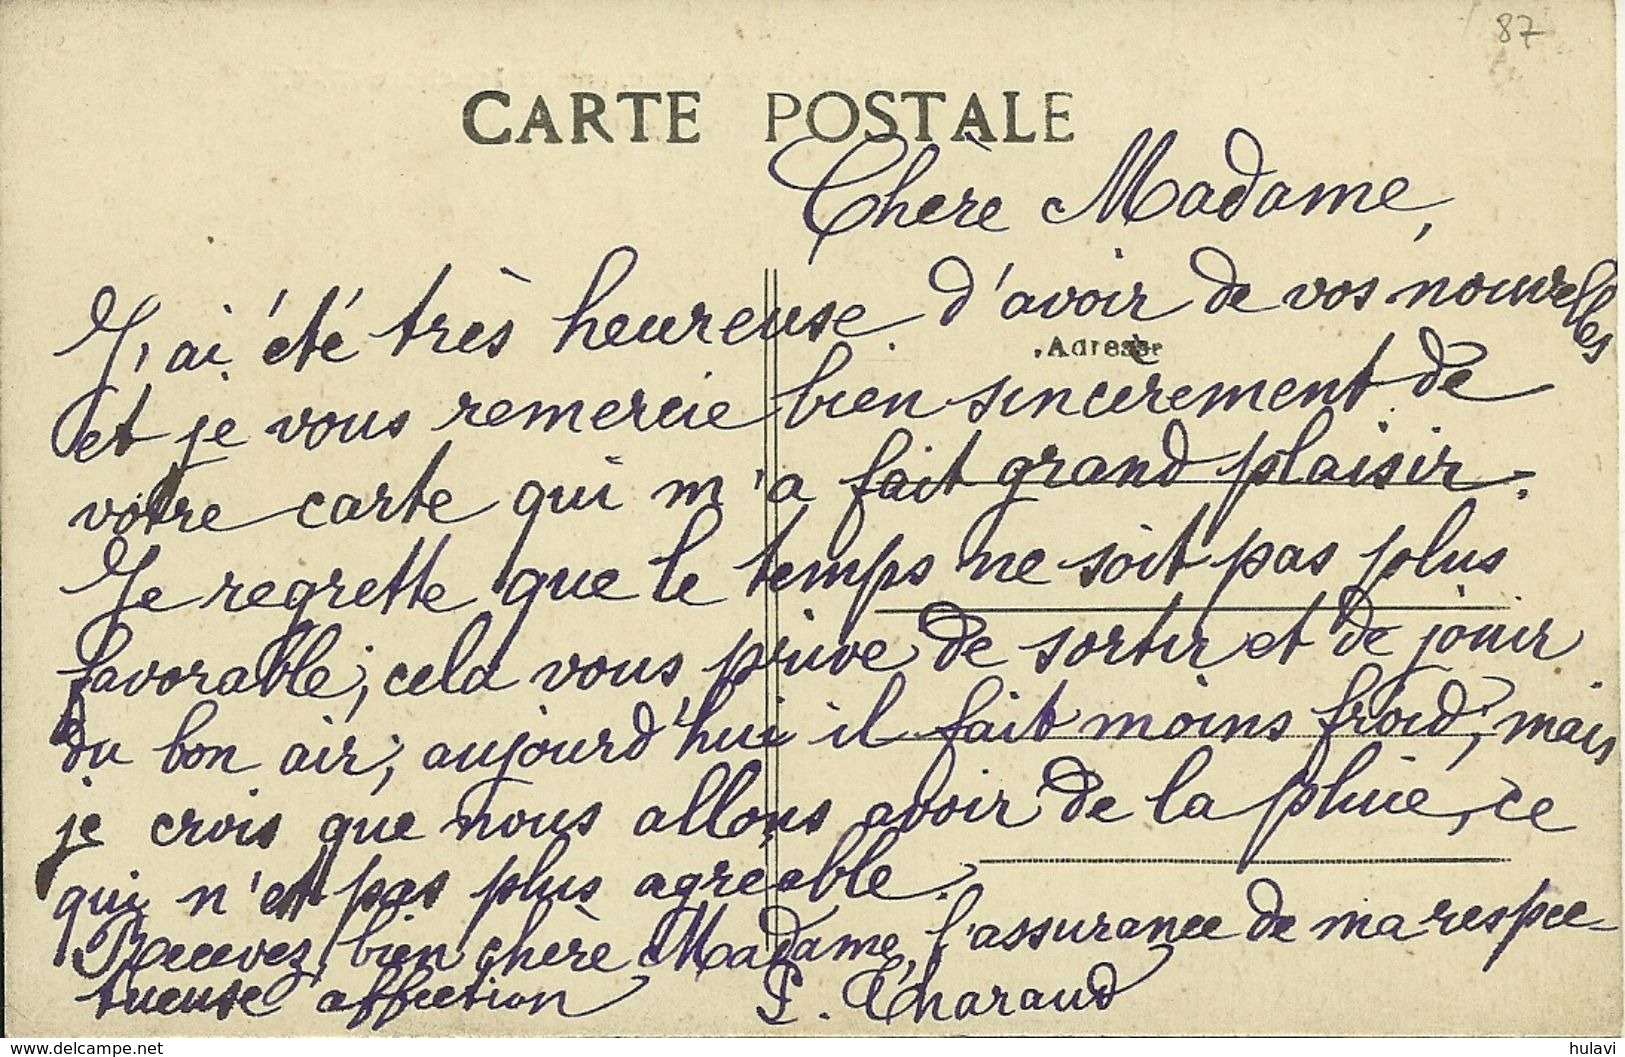 87
CARTE POSTALE
Chère Madame,
J'ai été très heureuse d'avoir de vos nouvelles
Adresse
et je vous remercie bien sincèrement de
votre carte qui m'a fait grand plaisir.
Je regrette que le temps ne soit pas plus
favorable, cela vous prive de sortir et de jouir
du bon air, aujourd'hui il fait moins froid, mais
je crois que nous allons avoir de la pluie, ce
qui n'est pas plus agréable.
Recevez bien chère Madame, l'assurance de ma respec-
tueuse affection P. Tharaud
www.delcampe.net
hulavi